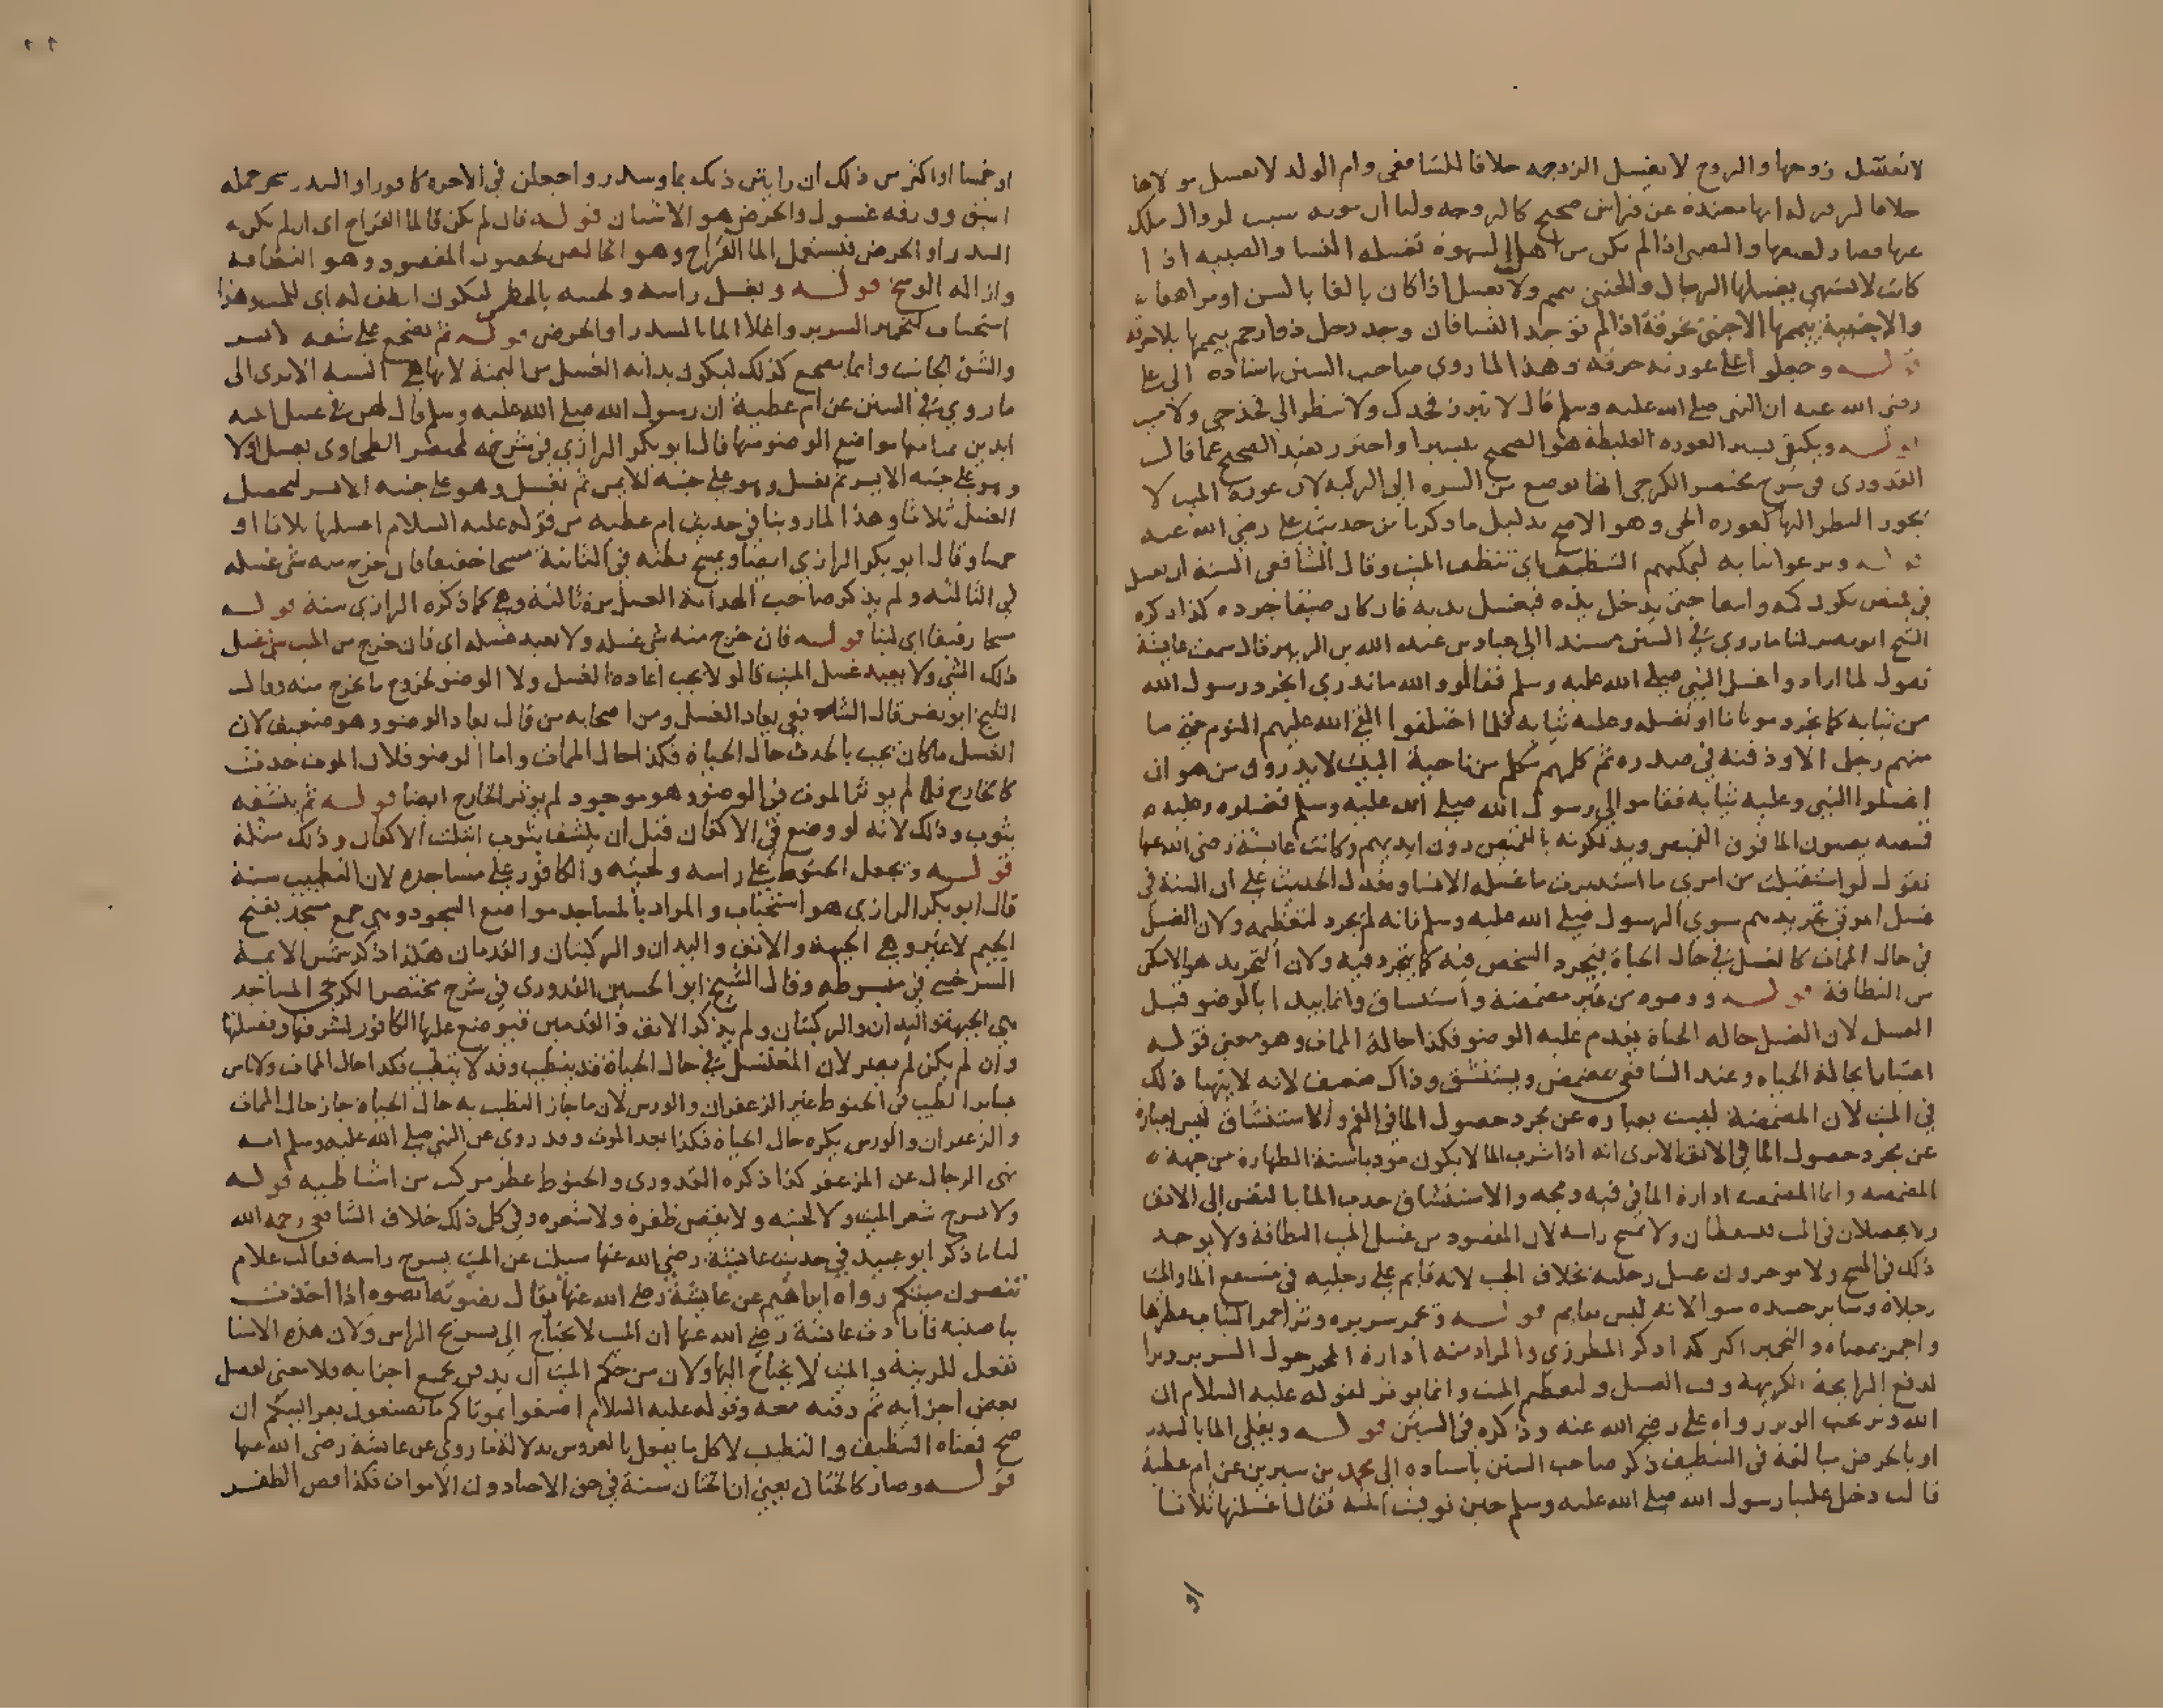 لا تغسل زوجها والزوج لا يغسل الزوجه خلافا للشافعي وام الولد لا تغسل مولاها
خلافا لزفر له انها معتدة عن فراش صحيح كالزوجه ولنا ان موته سبب لزوال ملك
عنها فصار والصبي اذا لم يكن من اهل الشهوة تغسله النسا والصبيه اذا
كانت لا تشتهي يغسلها الرجال والخنثى ييمم ولا يغسل اذا كان بالغا بالسن او مراهقا
والاجنبية ييممها الاجنبي بخرقة اذا لم توجد النسا فان وجد رجل ذو رحم ييممها بلا خرقه
قوله وجعلوا على عورته خرقة وهذا لما روى صاحب السنن باسناده الى علي
رضي الله عنه ان النبي صلى الله عليه وسلم قال لا تبرز فخدك ولا تنظر الى فخذ حي ولا ميت
قوله ويكتفي بستر العورة الغليظة هو الصحيح تيسيرا واحترز بقيد الصحيح عما قال
القدوري في شرح مختصر الكرخي انها توضع من السره الى الركبه لان عورة الميت لا
يجوز النظر اليها كعورة الحي وهو الاصح بدليل ما ذكرنا من حديث علي رضي الله عنه
قوله ونزعوا ثيابه ليمكنهم التنظيف اي تنظيف الميت وقال الشافعي السنة ان يغسل
في قميص يكون كمه واسعا حتى يدخل يده فيغسل بدنه فان كان ضيقا جرده كذا ذكره
الشيخ ابو نصر لنا ما روي في السنن مسندا الى عباد بن عبد الله بن الزبير قال سمعت عايشة
تقول لما ارادوا غسل النبي صلى الله عليه وسلم فقالوا والله ما ندري انجرد رسول الله
من ثيابه كما نجرد موتانا او نغسله وعليه ثيابه فلما اختلفوا القى الله عليهم النوم حتى ما
منهم رجل الا وذقنه في صدره ثم كلمهم مكلم من ناحية البيت لا يدرون من هو ان
اغسلوا النبي وعليه ثيابه فقاموا الى رسول الله صلى الله عليه وسلم فغسلوه وعليه
قميصه يصبون الما فوق القميص ويدلكونه بالقميص دون ايديهم وكانت عايشة رضي الله عنها
تقول لو استقبلت من امري ما استدبرت ما غسله الا نساوه فدل الحديث على ان السنة في
غسل الموتى تجريدهم سوى الرسول صلى الله عليه وسلم فانه لم يجرد لتعظيمه ولان الغسل
في حال الممات كالغسل في حال الحياة فيتجرد الشخص فيه كما يتجرد فيه ولان التجريد هو الامكن
من النظافة قوله ووضوه من غير مضمضة واستنشاق وانما يبدا بالوضو قبل
الغسل لان الغسل حاله الحياة يقدم عليه الوضو فكذا حالة الممات وهو معنى قوله
اعتبارا بحالة الحياه وعند الشافعي يمضمض ويستنشق وذاك ضعيف لانه لا يتهيا ذلك
في الميت لان المضمضة ليست بعباره عن مجرد حصول الما في الفم والاستنشاق ليس عبارة
عن مجرد حصول الما في الانف الا يرى انه اذا شرب الما لا يكون موديا سنة الطهارة من جهة
المضمضه وانما المضمضه ادارة الما في فيه ومجه والاستنشاق جذب الما بالنفس الى الانف
ولا يحصلان في الميت فيسقطان ولا تمسح راسه لان المقصود من غسل الميت النظافة ولا يوجد
ذلك في المسح ولا يوخرون غسل رجليه بخلاف الجنب لانه قايم على رجليه في مستنقع الما والميت
رجلاه وساير جسده سوا لانه ليس بقايم قوله وتجمر سريره وترا جمر الثياب عطرها
واجمر بمعناه والتجمير اكثر كذا ذكر المطرزي والمراد منه ادارة المجمر حول السرير وترا
لدفع الرايحة الكريهة وقت الغسل ولتعظيم الميت وانما يوتر لقوله عليه السلام ان
الله وتر يحب الوتر رواه علي رضي الله عنه وذكره في السنن قوله ويغلى الما بالسدر
او بالحرض مبالغة في التنظيف ذكر صاحب السنن باسناده الى محمد بن سيرين عن ام عطية
قالت دخل علينا رسول الله صلى الله عليه وسلم حين توفيت ابنته فقال اغسلنها ثلاثا
او
او خمسا او اكثر من ذلك ان رايتن ذلك بما وسدر واجعلن في الاخره كافورا والسدر شجر حمله
النبق وورقه غسول والحرض هو الاشنان قوله فان لم يكن فالما القراح اي ان لم يكن
السدر او الحرض فيستعمل الما القراح وهو الخالص لحصول المقصود وهو النظافه
وازاله الوسخ قوله ويغسل راسه ولحيته بالخطمي ليكون انظف له اي للميت وهذا
استحباب كتجمير السرير واغلا الما بالسدر او الحرض قوله ثم يضجع على شقه الايسر
والشق الجانب وانما يضجع كذلك ليكون بداية الغسل من اليمنة لانها هي السنه الا يرى الى
ما روي في السنن عن ام عطية ان رسول الله صلى الله عليه وسلم قال لهن في غسل ابنته
ابدين بميامنها ومواضع الوضو منها قال ابو بكر الرازي في شرحه لمختصر الطحاوي يغسل اولا
وهو على جنبه الايسر ثم يغسل وهو على جنبه الايمن ثم يغسل وهو على جنبه الايسر ليحصل
الغسل ثلاثا وهذا لما روينا في حديث ام عطيه من قوله عليه السلام اغسلنها ثلاثا او
خمسا وقال ابو بكر الرازي ايضا ويمسح بطنه في الثانية مسحا خفيفا فان خرج منه شي غسله
في الثالثه ولم يذكر صاحب الهداية الغسل مرة ثالثة وهي كما ذكره الرازي سنة قوله
مسحا رفيقا اي لينا قوله فان خرج منه شي غسله ولا يعيد غسله اي فان خرج من الميت شي غسل
ذلك الشي ولا يعيد غسل الميت قالوا لا يجب اعادة الغسل ولا الوضو لخروج ما خرج منه وقال
الشيخ ابو نصر قال الشافعي يعاد الغسل ومن اصحابه من قال يعاد الوضو وهو ضعيف لان
الغسل ما كان يجب بالحدث حال الحياة فكذا حال الممات واما الوضو فلان الموت حدث
كالخارج فلما لم يوثر الموت في الوضو وهو موجود لم يوثر الخارج ايضا قوله ثم ينشفه
بثوب وذلك لانه لو وضع في الاكفان قبل ان ينشف بثوب ابتلت الاكفان وذلك مثلة
قوله ويجعل الحنوط على راسه ولحيته والكافور على مساجده لان التطييب سنة
قال ابو بكر الرازي هو استحباب والمراد بالمساجد مواضع السجود وهي جمع مسجد بفتح
الجيم لا غير وهي الجبهة والانف واليدان والركبتان والقدمان هكذا ذكر شمس الايمة
السرخسي في مبسوطه وقال الشيخ ابو الحسين القدوري في شرح مختصر الكرخي المساجد
هي الجبهة واليدان والركبتان ولم يذكر الانف والقدمين فيوضع عليها الكافور لشرفها وفضلها
وان لم يكن لم يضر لان المغتسل في حال الحياة قد يتطيب وقد لا يتطيب فكذا حال الممات ولا باس
بساير الطيب في الحنوط غير الزعفران والورس لان ما جاز التطيب به حال الحياة جاز حال الممات
والزعفران والورس يكره حال الحياة فكذا بعد الموت وقد روي عن النبي صلى الله عليه وسلم انه
نهى الرجال عن المزعفر كذا ذكره القدوري والحنوط عطر مركب من اشيا طيبه قوله
ولا يسرح شعر الميت ولا لحيته ولا يقص ظفره ولا شعره وفي كل ذلك خلاف الشافعي رحمه الله
لنا ما ذكر ابو عبيد في حديث عايشة رضي الله عنها سيلت عن الميت يسرح راسه فقالت علام
تنصون ميتكم رواه ابراهيم عن عايشة رضي الله عنها يقال نصوته انصوه اذا اخذت
بناصيته فارادت عايشة رضي الله عنها ان الميت لا يحتاج الى تسريح الراس ولان هذه الاشيا
تفعل للزينة والميت لا يحتاج اليها ولان من حكم الميت ان يدفن بجميع اجزايه فلا معنى لفصل
بعض اجزايه ثم دفنه معه وقوله عليه السلام اصنعوا بموتاكم ما تصنعون بعرايسكم ان
صح فمعناه التنظيف والتطييب لا كل ما يفعل بالعروس بدلالة ما روي عن عايشة رضي الله عنها
قوله وصار كالختان يعني ان الختان سنة في حق الاحيا دون الاموات فكذا قص الظفر